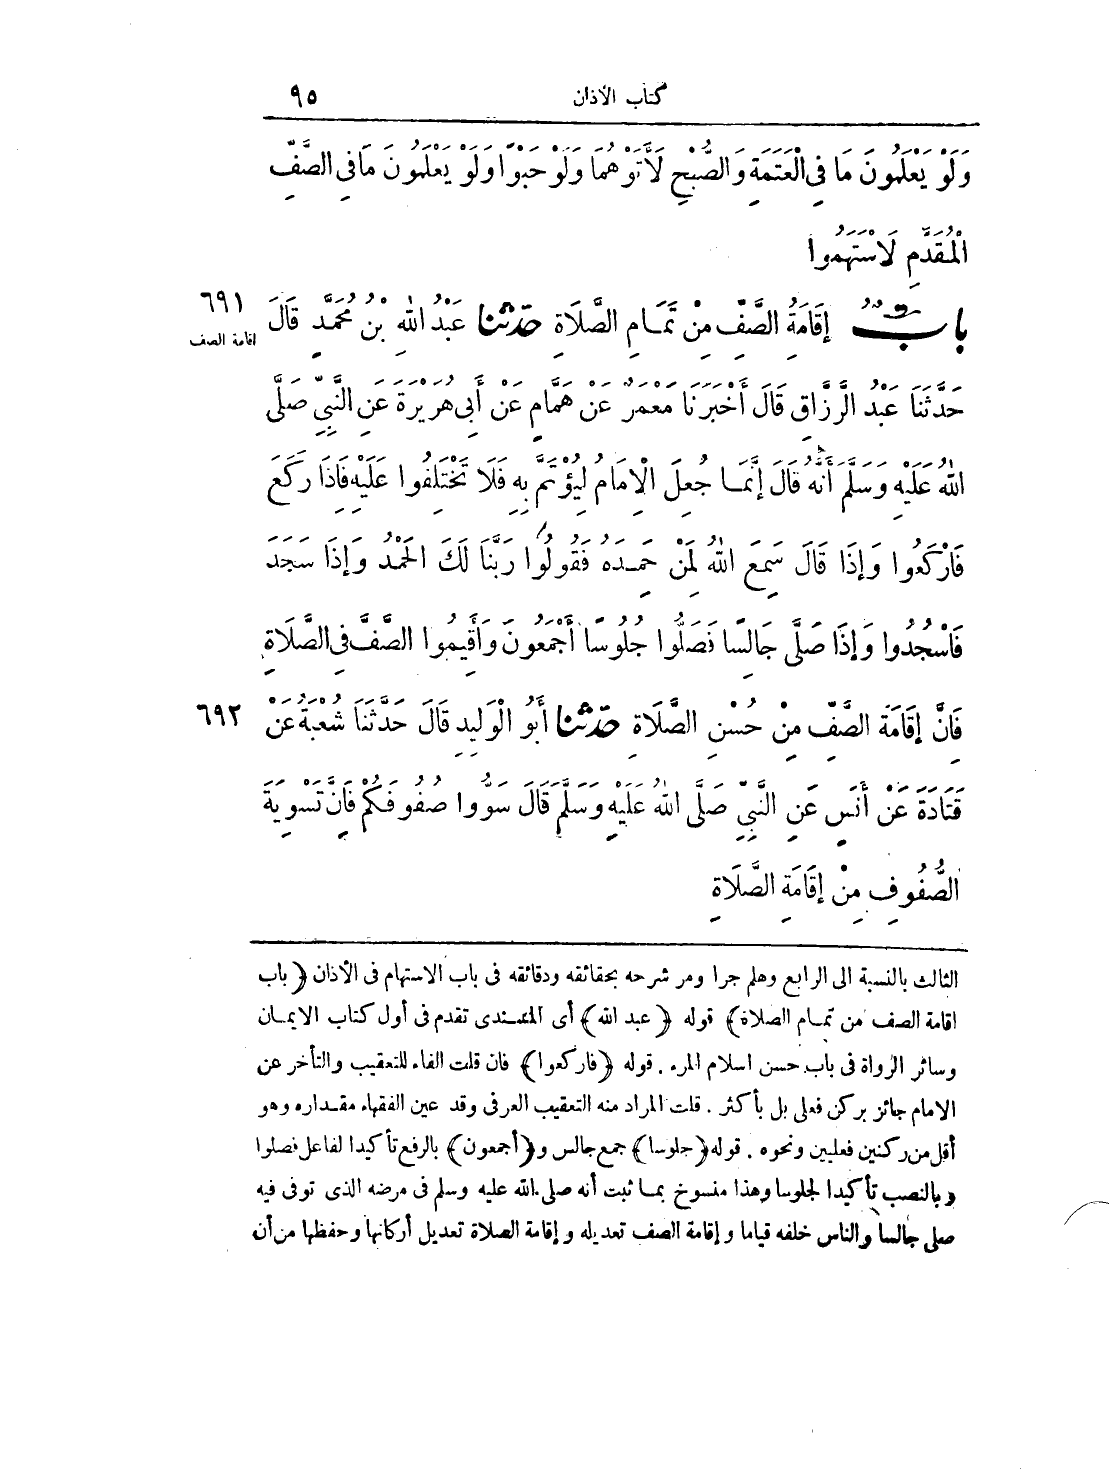 كتاب الأذان ٩٥
وَلَوْ يَعْلَمُونَ مَا فِي الْعَتَمَةِ وَالصُّبْحِ لَأَتَوْهُمَا وَلَوْ حَبْوًا وَلَوْ يَعْلَمُونَ مَا فِي الصَّفِّ
الْمُقَدَّمِ لَاسْتَهَمُوا
بَابٌ إِقَامَةُ الصَّفِّ مِنْ تَمَامِ الصَّلَاةِ حَدَّثَنَا عَبْدُ اللهِ بْنُ مُحَمَّدٍ قَالَ
٦٩١
اقامة الصف
حَدَّثَنَا عَبْدُ الرَّزَّاقِ قَالَ أَخْبَرَنَا مَعْمَرٌ عَنْ هَمَّامٍ عَنْ أَبِي هُرَيْرَةَ عَنِ النَّبِيِّ صَلَّى
اللهُ عَلَيْهِ وَسَلَّمَ أَنَّهُ قَالَ إِنَّمَا جُعِلَ الْإِمَامُ لِيُؤْتَمَّ بِهِ فَلَا تَخْتَلِفُوا عَلَيْهِ فَإِذَا رَكَعَ
فَارْكَعُوا وَإِذَا قَالَ سَمِعَ اللهُ لِمَنْ حَمِدَهُ فَقُولُوا رَبَّنَا لَكَ الْحَمْدُ وَإِذَا سَجَدَ
فَاسْجُدُوا وَإِذَا صَلَّى جَالِسًا فَصَلُّوا جُلُوسًا أَجْمَعُونَ وَأَقِيمُوا الصَّفَّ فِي الصَّلَاةِ
فَإِنَّ إِقَامَةَ الصَّفِّ مِنْ حُسْنِ الصَّلَاةِ حَدَّثَنَا أَبُو الْوَلِيدِ قَالَ حَدَّثَنَا شُعْبَةُ عَنْ
٦٩٢
قَتَادَةَ عَنْ أَنَسٍ عَنِ النَّبِيِّ صَلَّى اللهُ عَلَيْهِ وَسَلَّمَ قَالَ سَوُّوا صُفُوفَكُمْ فَإِنَّ تَسْوِيَةَ
الصُّفُوفِ مِنْ إِقَامَةِ الصَّلَاةِ
الثالث بالنسبة الى الرابع وهلم جرا ومر شرحه بحقائقه ودقائقه فى باب الاستهام فى الأذان (باب
اقامة الصف من تمام الصلاة) قوله (عبد الله) أى المسندى تقدم فى أول كتاب الايمان
وسائر الرواة فى باب حسن اسلام المرء. قوله (فاركعوا) فان قلت الفاء للتعقيب والتأخر عن
الامام جائز بركن فعلى بل بأكثر. قلت المراد منه التعقيب العرفى وقد عين الفقهاء مقداره وهو
أقل من ركنين فعليين ونحوه. قوله (جلوسا) جمع جالس و(أجمعون) بالرفع تأكيدا لفاعل فصلوا
وبالنصب تأكيدا لجلوسا وهذا منسوخ بما ثبت أنه صلى الله عليه وسلم فى مرضه الذى توفى فيه
صلى جالسا والناس خلفه قياما وإقامة الصف تعديله وإقامة الصلاة تعديل أركانها وحفظها من أن